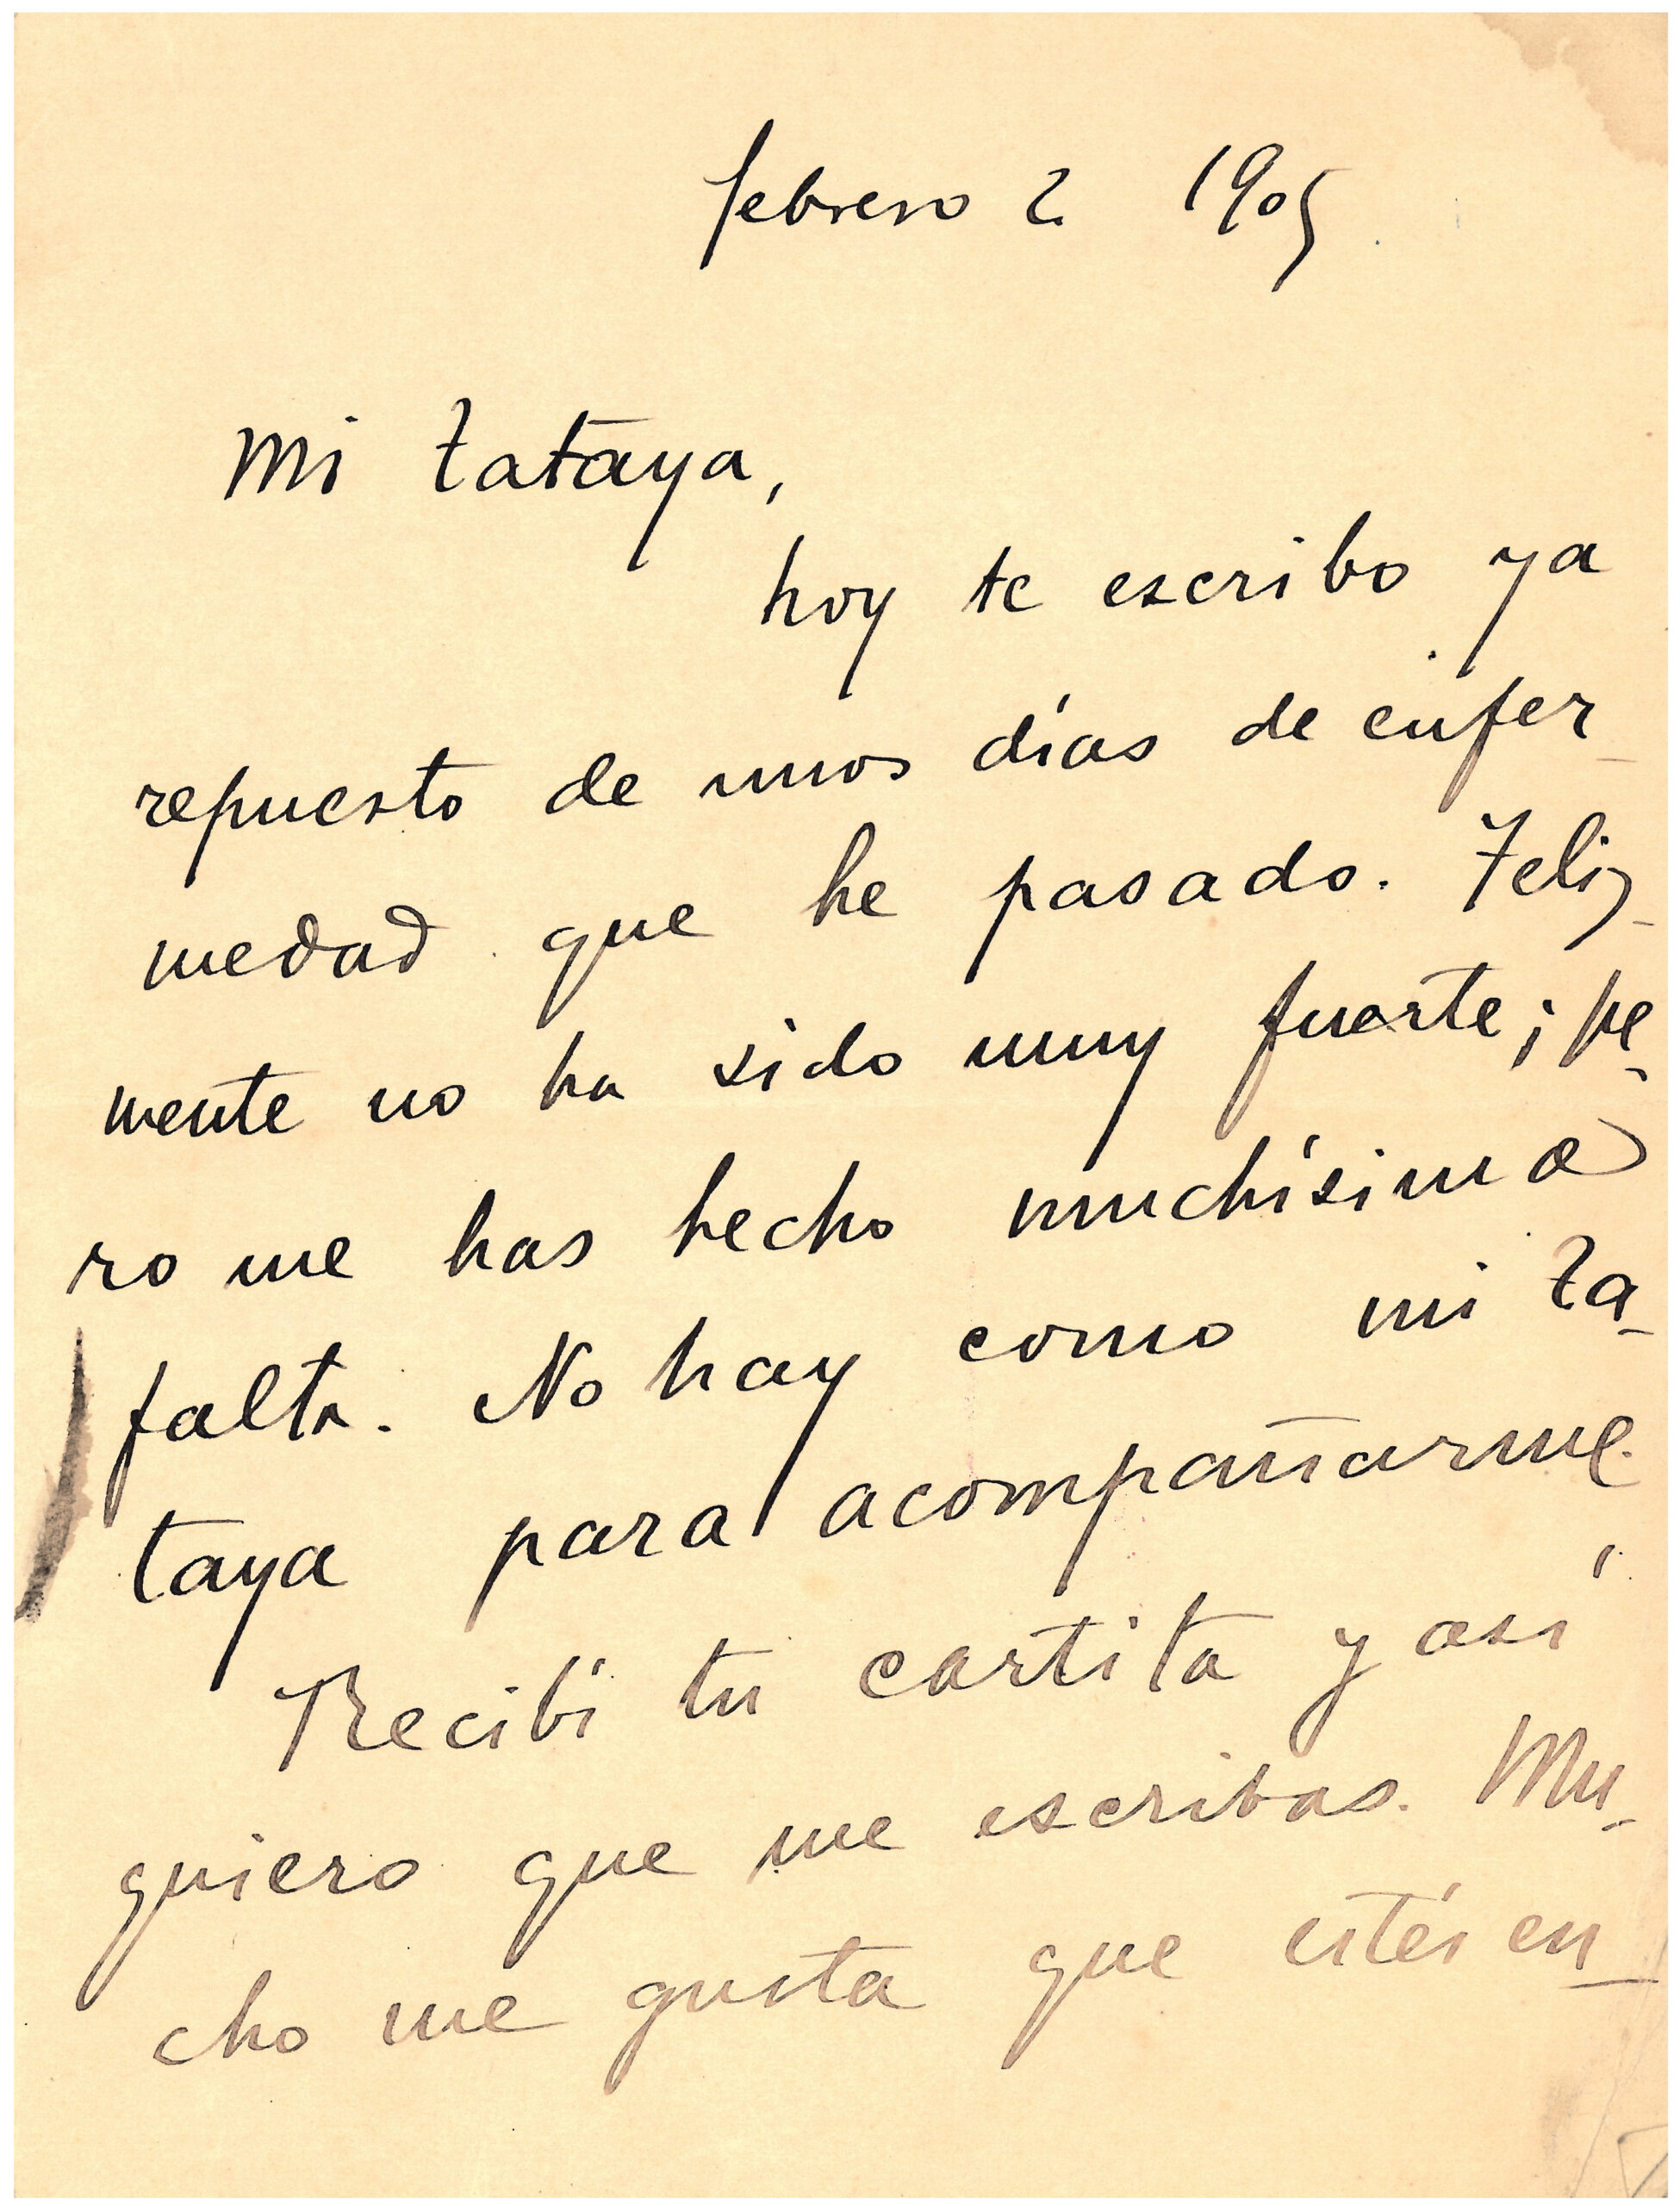 febrero 2 1905
Mi tataya,
hoy te escribo ya
repuesto de unos días de enfer-
medad que he pasado. Feliz-
mente no ha sido muy fuerte; pe-
ro me has hecho muchísima
falta. No hay como mi ta-
taya para acompañarme.
Recibí tu cartita y así
quiero que me escribas. Mu-
cho me gusta que estés en